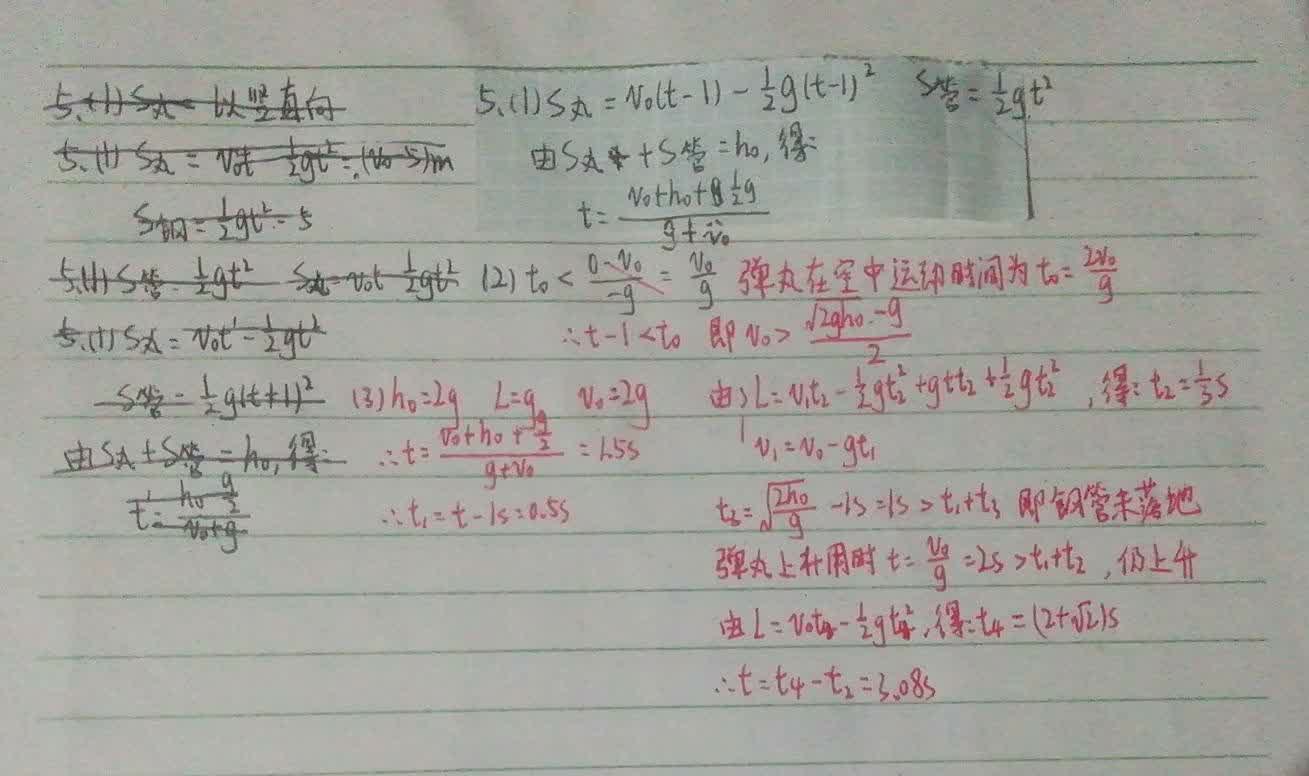 5.(1)S丸= 以竖直向
5.(1) S丸 = v₀t - ½gt² = (v₀-5)m
S钢 = ½gt² = 5
5.(1) S管 = ½gt² S丸 = v₀t - ½gt²
5.(1) S丸 = v₀t' - ½gt²
S管 = ½g(t+1)²
由S丸+S管 = h₀, 得:
5.(1) S丸 = v₀(t-1) - ½g(t-1)² S管 = ½gt²
由S丸 + S管 = h₀, 得:
t = (v₀+h₀+½g)/(g+v₀)
(2) t₀ < (0-v₀)/(-g) = v₀/g 弹丸在空中运动时间为t₀ = 2v₀/g
∴t-1<t₀ 即 v₀ > (√(2gh₀) - g)/2
(3) h₀=2g L=g v₀=2g
∴t = (v₀+h₀+g/2)/(g+v₀) = 1.5s
∴t₁ = t-1s = 0.5s
由 L = v₁t₂ - ½gt₂² + gtt₂ + ½gt₂², 得: t₂ = ⅓s
v₁ = v₀ - gt₁
t₃ = √(2h₀/g) - 1s = 1s > t₁+t₃ 即钢管未落地
弹丸上升用时 t = v₀/g = 2s > t₁+t₂, 仍上升
由 L = v₀t₄ - ½gt₄², 得: t₄ = (2+√2)s
∴t = t₄ - t₂ = 3.08s